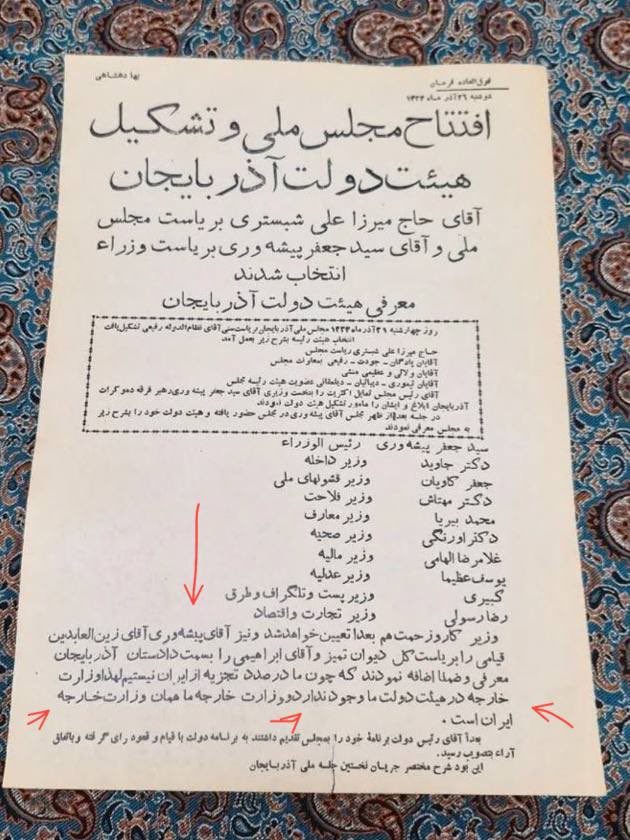 فوق‌العاده فرمان
بها دهشاهی
دوشنبه ۲۶ آذر ماه ۱۳۲۴
افتتاح مجلس ملی و تشکیل
هیئت دولت آذربایجان
آقای حاج میرزا علی شبستری بریاست مجلس
ملی و آقای سید جعفر پیشه وری بریاست وزراء
انتخاب شدند
معرفی هیئت دولت آذربایجان
روز چهارشنبه ۲۱ آذر ماه ۱۳۲۴ مجلس ملی آذربایجان بریاست سنی آقای نظام‌الدوله رفیعی تشکیل یافت
انتخاب هیئت رئیسه بشرح زیر بعمل آمد
حاج میرزا علی شبستری ریاست مجلس
آقایان پادگان - جودت - رفیعی بمعاونت مجلس
آقایان ولائی و عظیمی منشی
آقایان تیموری - دیبائیان - دیلمقانی عضویت هیئت رئیسه مجلس
آقای رئیس مجلس تمایل اکثریت را بنخست وزیری آقای سید جعفر پیشه وری رهبر فرقه دموکرات
آذربایجان ابلاغ و ایشان را مامور تشکیل هیئت دولت نمودند
در جلسه بعد از ظهر مجلس آقای پیشه وری در مجلس حضور یافته و هیئت دولت خود را بشرح زیر
به مجلس معرفی نمودند
سید جعفر پیشه وری رئیس الوزراء
دکتر جاوید وزیر داخله
جعفر کاویان وزیر قشونهای ملی
دکتر مهتاش وزیر فلاحت
محمد بیریا وزیر معارف
دکتر اورنگی وزیر صحیه
غلامرضا الهامی وزیر مالیه
یوسف عظیما وزیر عدلیه
کبیری وزیر پست و تلگراف و طرق
رضا رسولی وزیر تجارت و اقتصاد
وزیر کار و زحمت هم بعدا تعیین خواهد شد و نیز آقای پیشه وری آقای زین العابدین
قیامی را بریاست کل دیوان تمیز و آقای ابراهیمی را بسمت دادستان آذربایجان
معرفی و ضمنا اضافه نمودند که چون ما در صدد تجزیه از ایران نیستیم لهذا وزارت
خارجه در هیئت دولت ما وجود ندارد و وزارت خارجه ما همان وزارت خارجه
ایران است .
بعداً آقای رئیس دولت برنامهٔ خود را بمجلس تقدیم داشتند به برنامه دولت با قیام و قعود رای گرفته و باتفاق
آراء بتصویب رسید.
این بود شرح مختصر جریان نخستین جلسه ملی آذربایجان